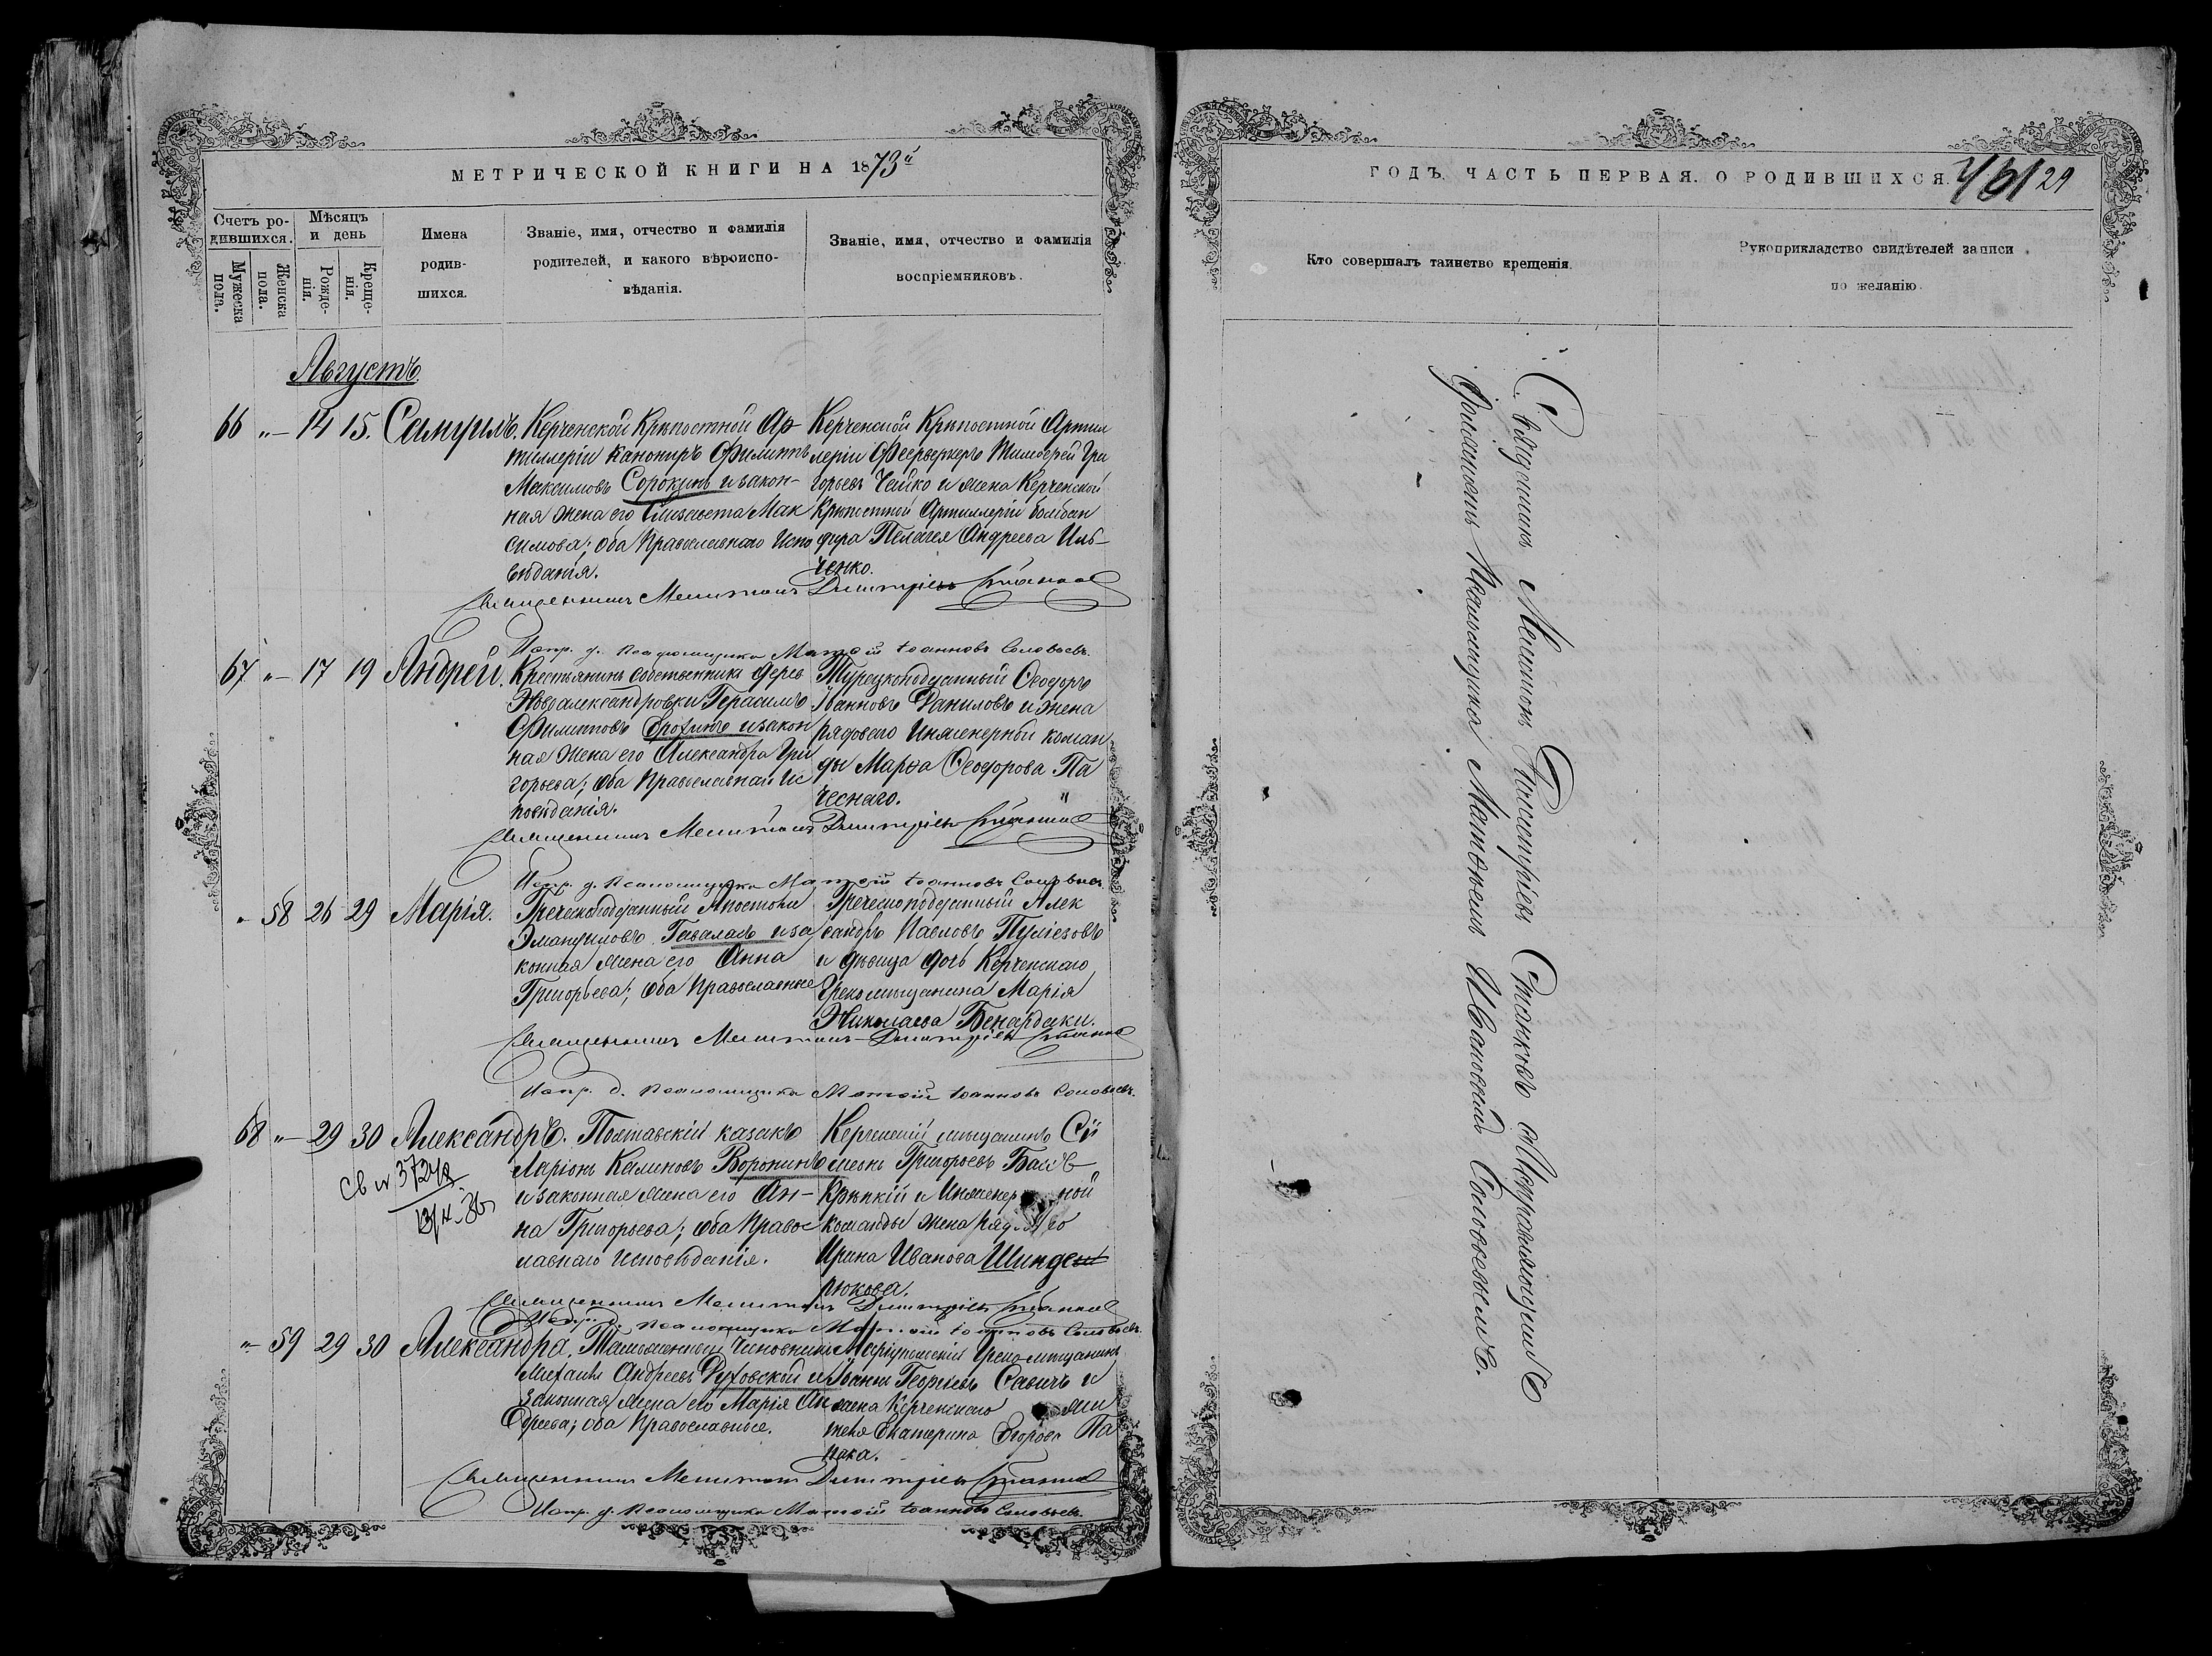 МЕТРИЧЕСКОЙ КНИГИ НА 1873й
Счетъ ро-
дившихся.
Мужеска
пола.
Женска
пола.
Мѣсяцъ
и день
Рожде-
нія.
Креще-
нія.
Имена
родив-
шихся.
Званіе, имя, отчество и фамилія
родителей, и какого вѣроиспо-
вѣданія.
Званіе, имя, отчество и фамилія
воспріемниковъ.
Августъ
66 „ — 14 15. Самуилъ.
Керченской Крѣпостной Ар
тиллеріи Канониръ Филиппъ
Максимовъ Сорокинъ и закон-
ная жена его Елисавета Мак
симова; оба Православнаго Испо
вѣданія.
Керченской Крѣпостной Артил
леріи Феерверкеръ Тимоѳей Гри
горьевъ Чайко и жена Керченской
Крѣпостной Артиллеріи бомбан
дира Пелагея Андреева Иль-
ченко.
Священникъ Мелитонъ Димитріевъ Станковъ
Испр. д. Псаломщика Матѳій Іоанновъ Соловьевъ.
67 „ — 17 19 Андрей.
Крестьянинъ Собственникъ дерев
Новоалександровки Герасимъ
Филипповъ и закон
ная жена его Александра Гри
горьева; оба Православнаго Ис
повѣданія.
Турецкоподданный Ѳеодоръ
Іванновъ Даниловъ и жена
рядоваго Инженерной коман
ды Марѳа Ѳеодорова Па
ческаго.
Священникъ Мелитонъ Димитріевъ Станковъ
Испр. д. Псаломщика Матѳій Іоанновъ Соловьевъ
„ 58 26 29 Марія.
Греческоподданный Апостолъ
Эмануиловъ Гаваласъ и за
конная жена его Анна
Григорьева; оба Православные
Греческоподданный Алек
сандръ Павловъ Пуліезовъ
и дѣвица дочь Керченскаго
Грекомѣщанина Марія
Николаева Бенардаки.
Священникъ Мелитонъ Димитріевъ Станковъ
Испр. д. Псаломщика Матѳій Іоанновъ Соловьевъ.
68 „ — 29 30 Александръ.
Св № 3724
Полтавскій казакъ
Ларіонъ Калиновъ Воронинъ
и законная жена его Ан-
на Григорьева; оба Правос
лавнаго Исповѣданія.
Керченскій мѣщанинъ Си
меонъ Григорьевъ Бас
Крѣпкій и Инженерной
команды жена рядоваго
Ирина Иванова Шинде
рюкова.
Священникъ Мелитонъ Димитріевъ Станковъ
Испр. д. Псаломщика Матѳій Іоанновъ Соловьевъ.
„ 59 29 30 Александра.
Таможенный Чиновникъ
Михаилъ Андреевъ Духовской и
законная жена его Марія Ан
дреева; оба Православные.
Маріупольскій Грекомѣщанинъ
Іваннъ Георгіевъ Савичъ и
жена Керченскаго
Екатерина Егорова Па
пака.
Священникъ Мелитонъ Димитріевъ Станковъ
Испр. д. Псаломщика Матѳій Іоанновъ Соловьевъ.
ГОДЪ. ЧАСТЬ ПЕРВАЯ. О РОДИВШИХСЯ.
461 29
Кто совершалъ таинство крещенія.
Рукоприкладство свидѣтелей записи
по желанію.
Священникъ Мелитонъ Димитріевъ Станковъ
Псаломщика Матѳеемъ Ивановымъ Соловьевымъ.